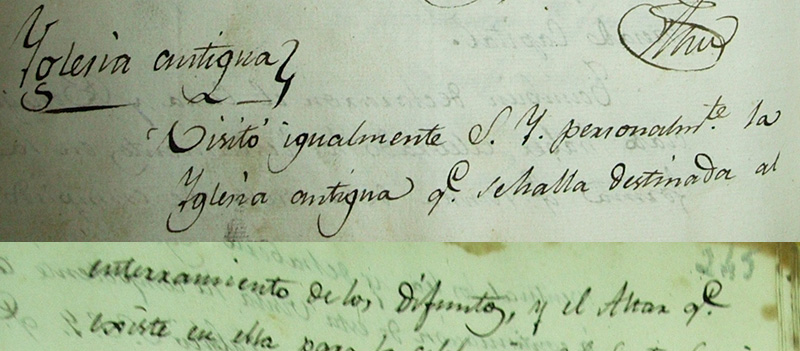 Yglesia antigua
Visitó igualmente S. Y. personalmte. la
Yglesia antigua qe. sehalla destinada al
enterramiento delos difuntos, y el Altar qe.
existe en ella para la